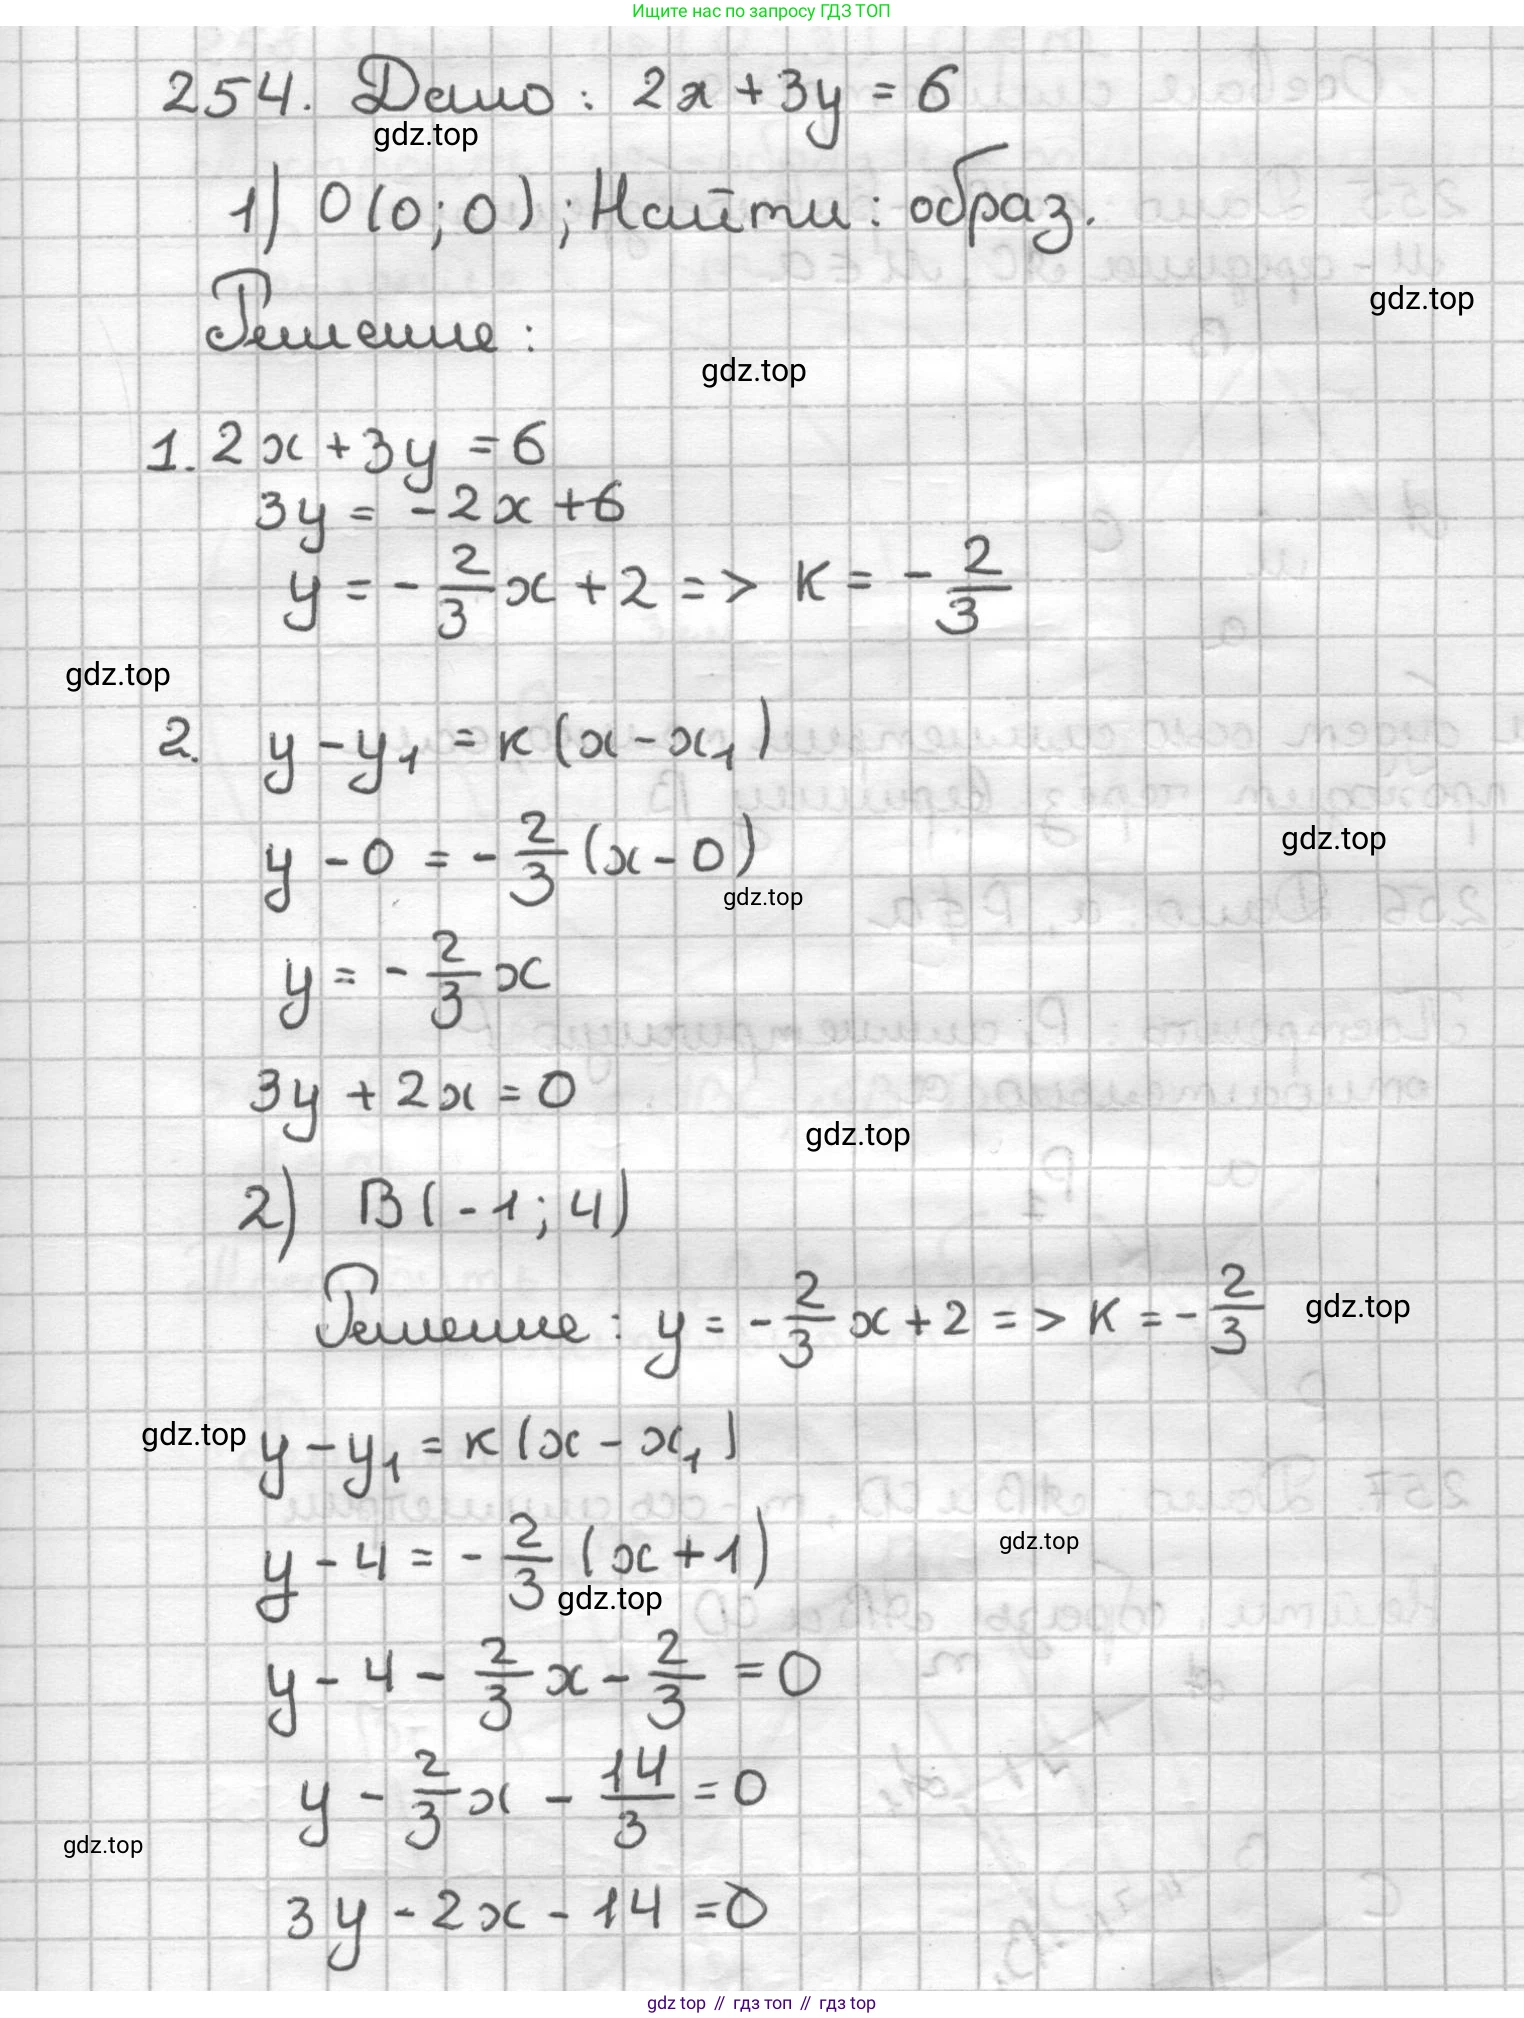 Ищите нас по запросу ГДЗ ТОП
254. Дано: 2x + 3y = 6
gdz.top
1) O(0; 0); Найти: образ.
gdz.top
Решение:
gdz.top
1. 2x + 3y = 6
3y = -2x + 6
y = -2/3 x + 2 => K = -2/3
gdz.top
2. y - y₁ = K(x - x₁)
gdz.top
y - 0 = -2/3 (x - 0)
gdz.top
y = -2/3 x
3y + 2x = 0
gdz.top
2) B(-1; 4)
Решение: y = -2/3 x + 2 => K = -2/3
gdz.top
gdz.top
y - y₁ = K(x - x₁)
gdz.top
y - 4 = -2/3 (x + 1)
gdz.top
y - 4 - 2/3 x - 2/3 = 0
y - 2/3 x - 14/3 = 0
gdz.top
3y - 2x - 14 = 0
gdz top // гдз топ // гдз top